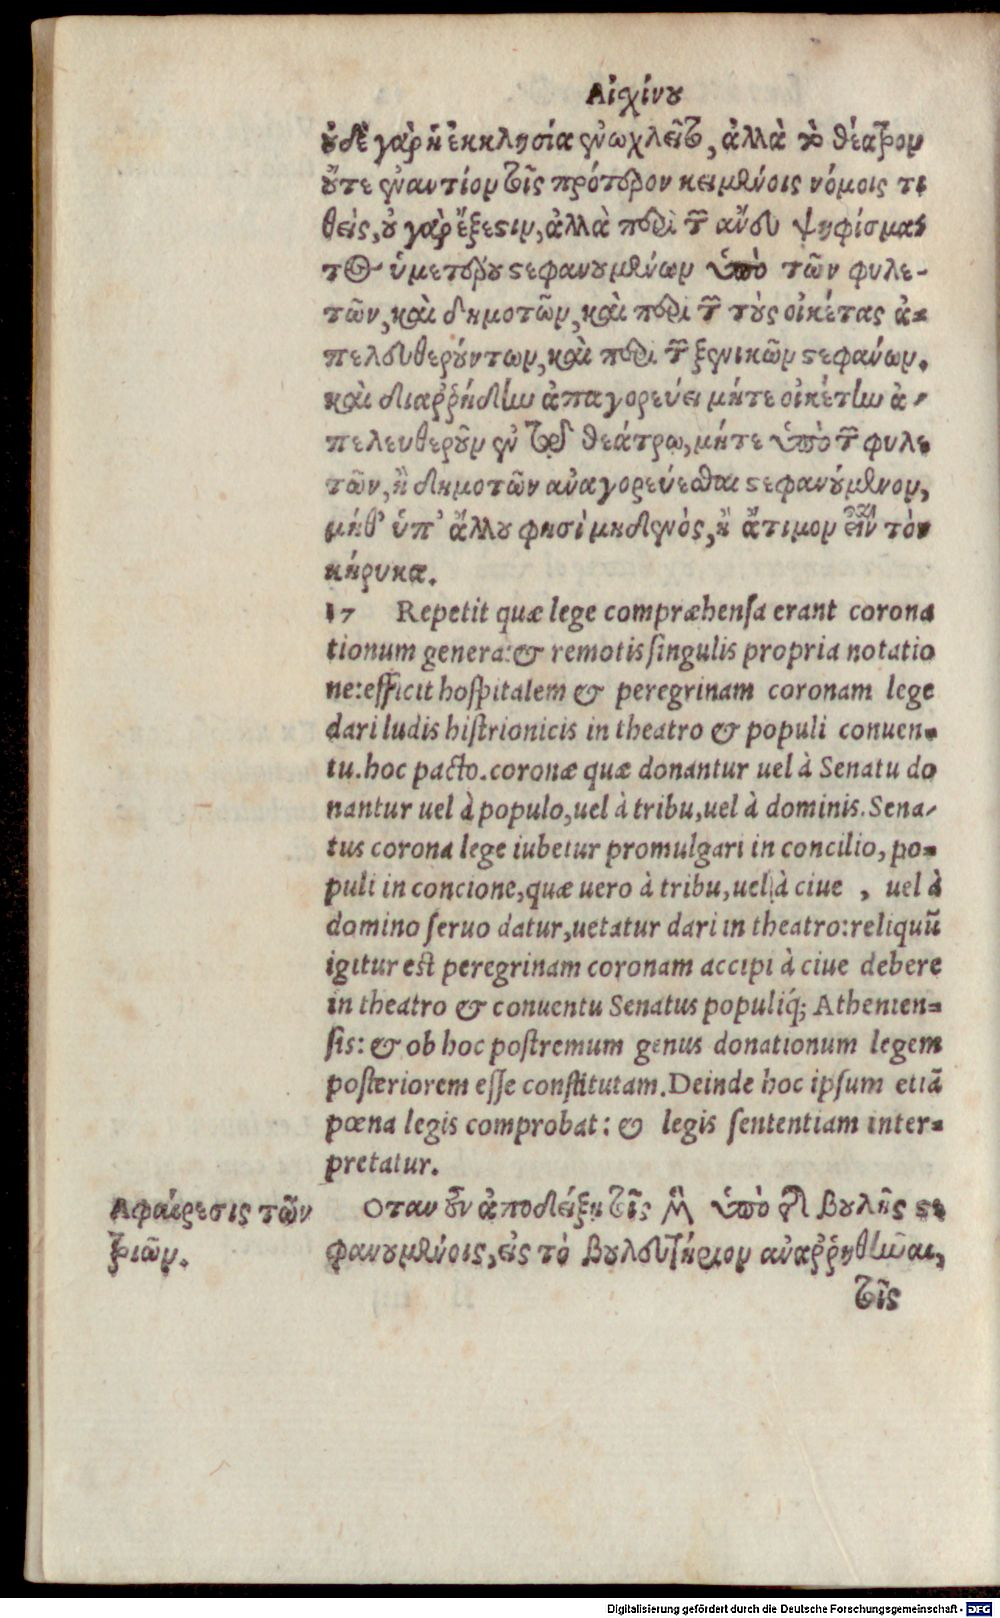 Αἰχίνου
οὐδὲ γὰρ ἡ ἐκκλησία ἐνωχλεῖτο, ἀλλὰ τὸ θέατρον
οὔτε ἐναντίον τοῖς πρότερον κειμένοις νόμοις τι
θεὶς, οὐ γὰρ ἔξεστιν, ἀλλὰ περὶ τῶν ἄνευ ψηφίσμα-
τος ὑμετέρου στεφανουμένων ὑπὸ τῶν φυλε-
τῶν, καὶ δημοτῶν, καὶ περὶ τῶν τοὺς οἰκέτας ἀ-
πελευθερούντων, καὶ περὶ τῶν ξενικῶν στεφάνων.
καὶ διαῤῥήδην ἀπαγορεύει μήτε οἰκέτην ἀ-
πελευθεροῦν ἐν τῷ θεάτρῳ, μήτε ὑπὸ τῶν φυλε
τῶν, ἢ δημοτῶν ἀναγορεύεσθαι στεφανούμενον,
μήθ' ὑπ' ἄλλου φησὶ μηδενὸς, ἢ ἄτιμον εἶναι τὸν
κήρυκα.
17 Repetit quæ lege compræhensa erant corona
tionum genera: & remotis singulis propria notatio
ne: efficit hospitalem & peregrinam coronam lege
dari ludis histrionicis in theatro & populi conuen-
tu. hoc pacto. coronæ quæ donantur uel à Senatu do
nantur uel à populo, uel à tribu, uel à dominis. Sena-
tus corona lege iubetur promulgari in concilio, po-
puli in concione, quæ uero à tribu, uel à ciue , uel à
domino seruo datur, uetatur dari in theatro: reliquũ
igitur est peregrinam coronam accipi à ciue debere
in theatro & conuentu Senatus populiq́; Athenien-
sis: & ob hoc postremum genus donationum legem
posteriorem esse constitutam. Deinde hoc ipsum etiã
pœna legis comprobat: & legis sententiam inter-
pretatur.
Αφαίρεσις τῶν
τριῶν.
Οταν οὖν ἀποδείξῃ τοῖς μὲν ὑπὸ τῆς βουλῆς στε
φανουμένοις, εἰς τὸ βουλευτήριον ἀναῤῥηθῆναι,
τοῖς
Digitalisierung gefördert durch die Deutsche Forschungsgemeinschaft - DFG